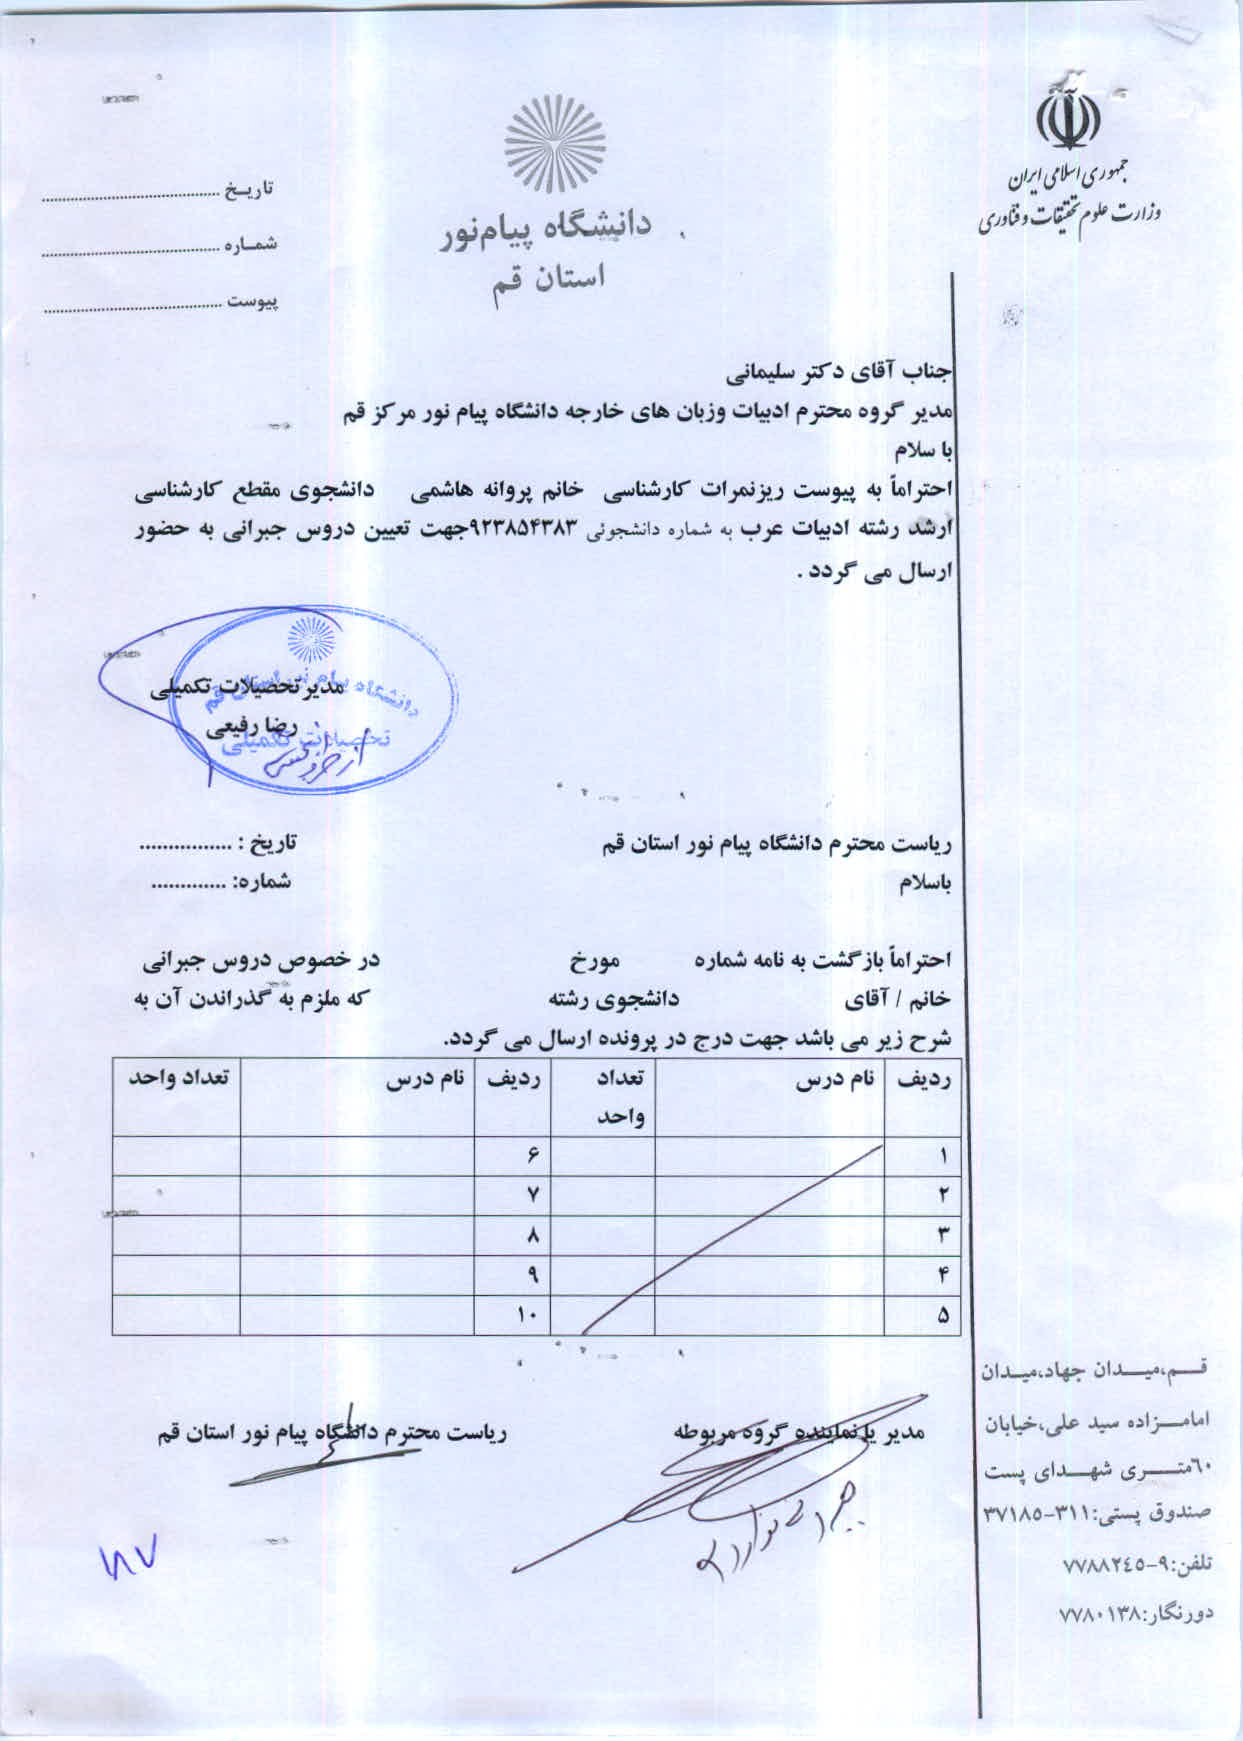 جمهوری اسلامی ایران
وزارت علوم تحقیقات و فناوری
دانشگاه پیام‌نور
استان قم
تاریـخ ............................................
شمـاره ............................................
پیوست ............................................
جناب آقای دکتر سلیمانی
مدیر گروه محترم ادبیات وزبان های خارجه دانشگاه پیام نور مرکز قم
با سلام
احتراماً به پیوست ریزنمرات کارشناسی خانم پروانه هاشمی دانشجوی مقطع کارشناسی
ارشد رشته ادبیات عرب به شماره دانشجوئی ۹۲۳۸۵۴۳۸۳جهت تعیین دروس جبرانی به حضور
ارسال می گردد .
دانشگاه پیام نور استان قم
تحصیلات تکمیلی
مدیر تحصیلات تکمیلی
رضا رفیعی
ریاست محترم دانشگاه پیام نور استان قم
تاریخ : ................
باسلام
شماره: .............
احتراماً بازگشت به نامه شماره مورخ در خصوص دروس جبرانی
خانم / آقای دانشجوی رشته که ملزم به گذراندن آن به
شرح زیر می باشد جهت درج در پرونده ارسال می گردد.
ردیف نام درس تعداد واحد ردیف نام درس تعداد واحد
۱ ۶
۲ ۷
۳ ۸
۴ ۹
۵ ۱۰
مدیر یا نماینده گروه مربوطه
ریاست محترم دانشگاه پیام نور استان قم
قــم،میــدان جهاد،میـدان
امامــزاده سید علی،خیابان
٦٠متــری شهــدای پست
صندوق پستی:۳۱۱-۳۷۱۸۵
تلفن:۹-۷۷۸۸۲٤٥
دورنگار:۷۷۸۰۱۳۸